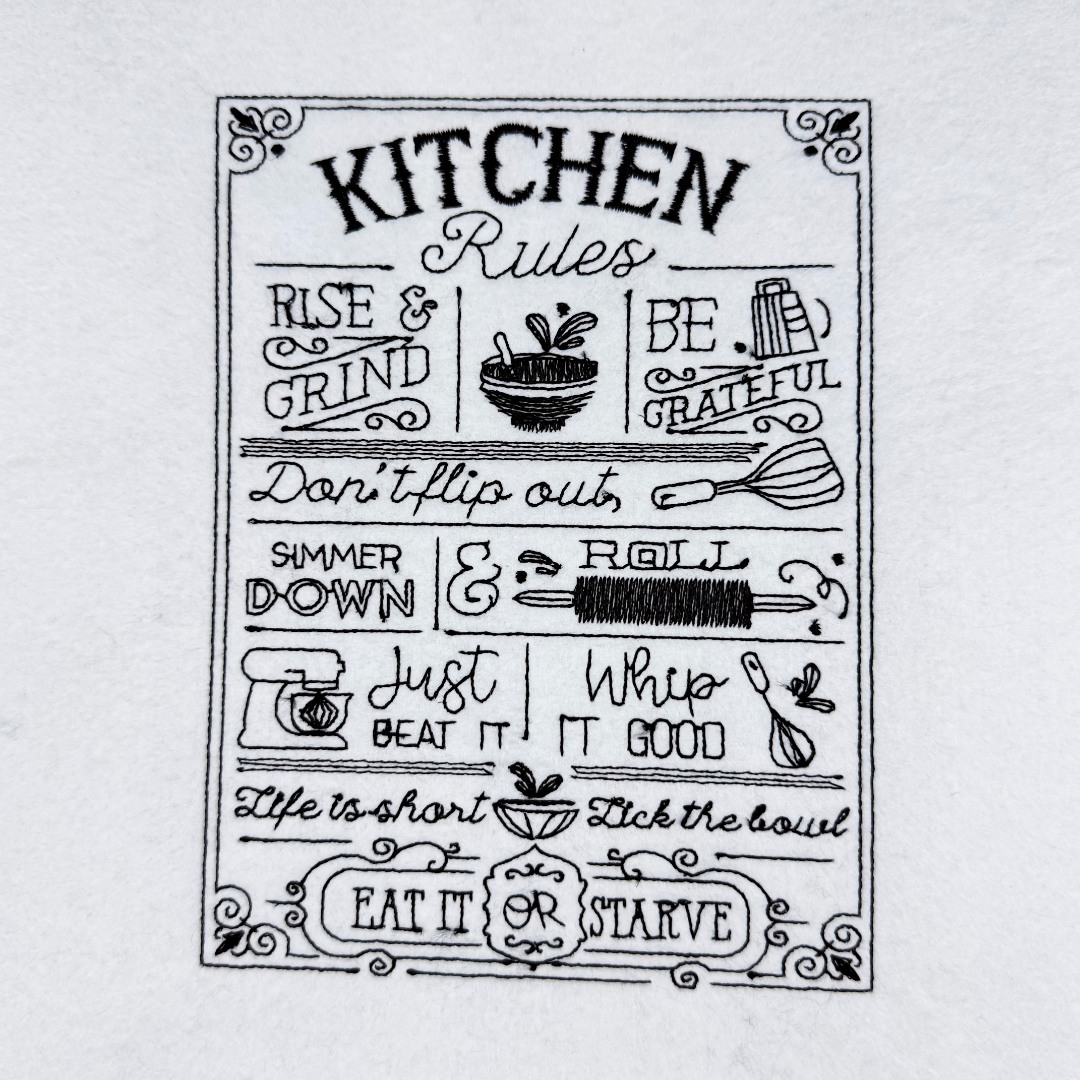 KITCHEN
Rules
RISE &
GRIND
BE
GRATEFUL
Don't flip out,
SIMMER
DOWN
& ROLL
Just
BEAT IT
Whip
IT GOOD
Life is short
Lick the bowl
EAT IT OR STARVE